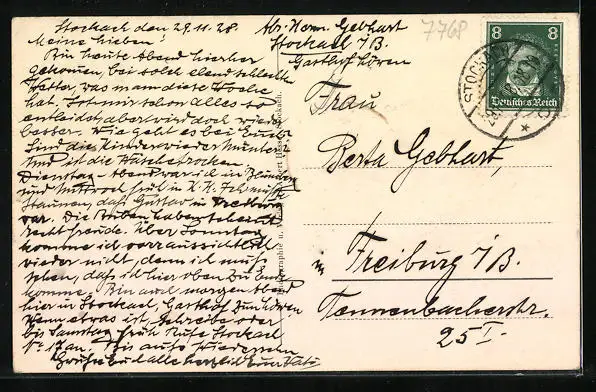 Stockach den 29.11.28.
Meine Lieben!
Bin heute Abend hierher
gekommen, bei solch elend schlecht
Wetter, was man diese Woche
hat. Ist mir schon alles so
entleidet, aber wird doch wieder
besser. Wie geht es bei Euch
Sind die Kinder wieder munter
Und ist die Wäsche trocken.
Dienstag Abend war ich in
und Mittwoch früh in
Staunen, daß Gustav in Freiburg
war. Die Buben haben
recht Freude. Über Sonntag
komme ich voraussichtlich
nicht, denn ich muß
sehen, daß ich hier oben zu Ende
komme. Bin auch morgen Abend
hier in Stockach, Gasthof zum Löwen
Wenn etwas ist, schreibe oder
bis Samstag früh Rufe Stockach
No 17 an. Bis aufs Wiedersehn
Grüße Euch alle herzlich Euer Vati
Abs. Herm. Gebhart
Stockach i/B.
Gasthof Löwen
7768
8 8
Deutsches Reich
STOCKACH
Frau
Berta Gebhart,
in Freiburg i/B.
Tennenbacherstr.
25 I.